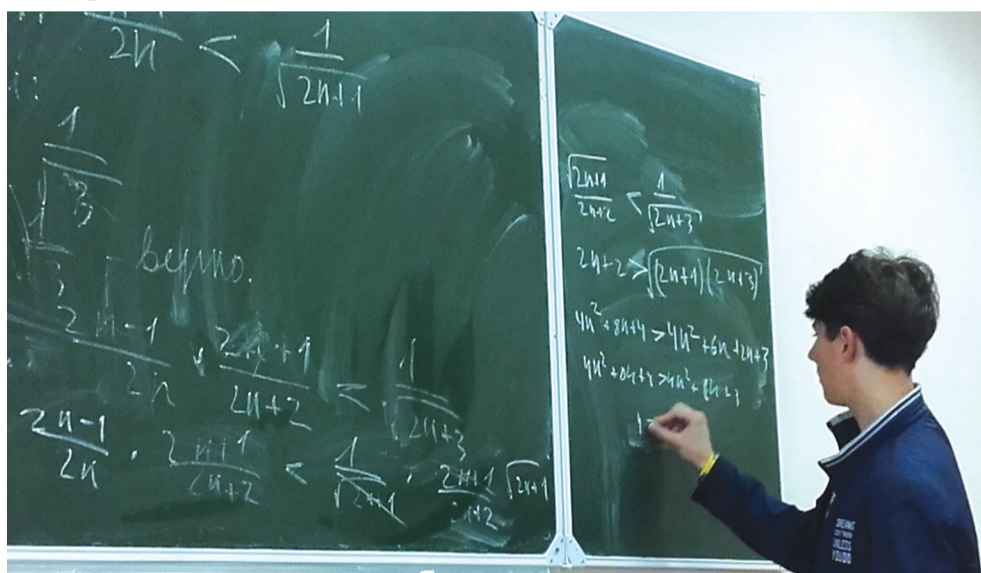 2n < 1/√(2n+1)
1/√3
1/√3 - верно.
2n-1/2n · 2n+1/2n+2 < 1/√(2n+3)
2n-1/2n · 2n+1/2n+2 < 1/√(2n+1) · 2n+1/2n+2 √(2n+1)
√(2n+1)/2n+2 < 1/√(2n+3)
2n+2 > √((2n+1)(2n+3))
4n²+8n+4 > 4n²+6n+2n+3
4n²+8n+4 > 4n²+8n+3
DREAMS